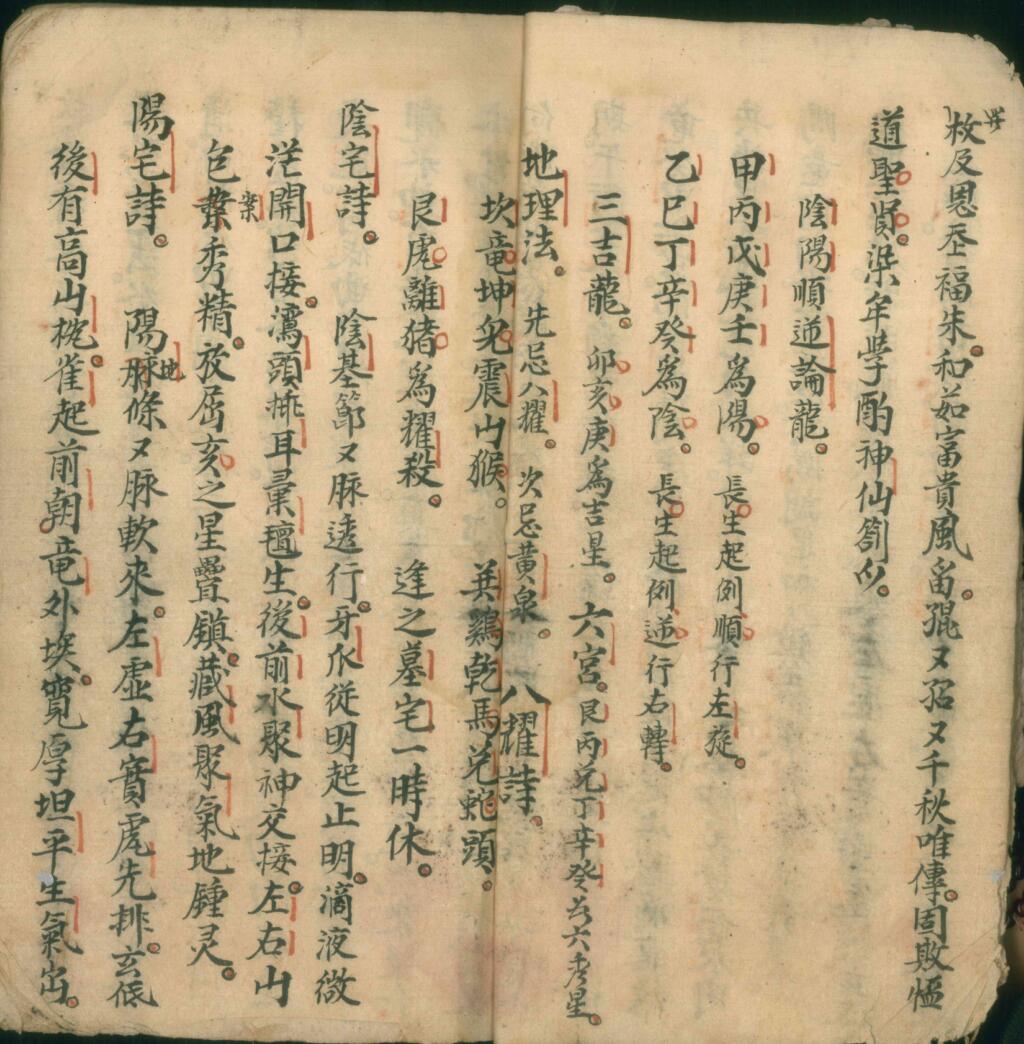 枚及恩丕福朱。和茹富貴風畄。猑又𡥵又千秋唯傳。固敗愠
道聖贤。梁年學酌神仙劄𠔭。
陰陽順逆論龍。
甲丙戊庚壬為陽。長生起例順行左旋。
乙巳丁辛癸為陰。長生起例逆行右轉。
三吉龍。卯亥庚為吉星。六宮。艮丙兑丁辛癸為六秀星。
地理法。先忌八耀。次忌黄泉。八耀詩。
坎竜坤兔震山猴。巽鷄乾馬兑蛇頭。
艮虎離猪為耀殺。逢之墓宅一時休。
陰宅詩。陰基節又脉逶行。牙爪從明起止明。滴液微
茫開口接。瀉頭排耳氣氊生。後前水聚神交接。左右山
包葉秀精。放居亥之星疊鎖。藏風聚氣地鍾灵。
陽宅詩。陽地脉條又脉軟來。左虚右實虎先排。玄低
後有高山枕。雀起前朝。竜外埃。寬厚坦平生氣出。